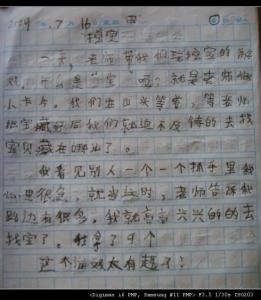 2009.7月16日
挖宝
一天,老师带我们玩挖宝的游
戏,什么是挖宝呢?就是老师做
人卡片。我们在山头等着,等老师
把宝藏好后我们就迫不及待的去找
宝贝藏在哪儿了。
我看见别人一个一个抓手里我
心里很急,就当这时,老师告诉我
路边有很多,我就高高兴兴的的去
找宝了。我拿了9个
这个游戏太有趣了!
<Digimax i6 PMP, Samsung #11 PMP> F3.5 1/30s ISO203